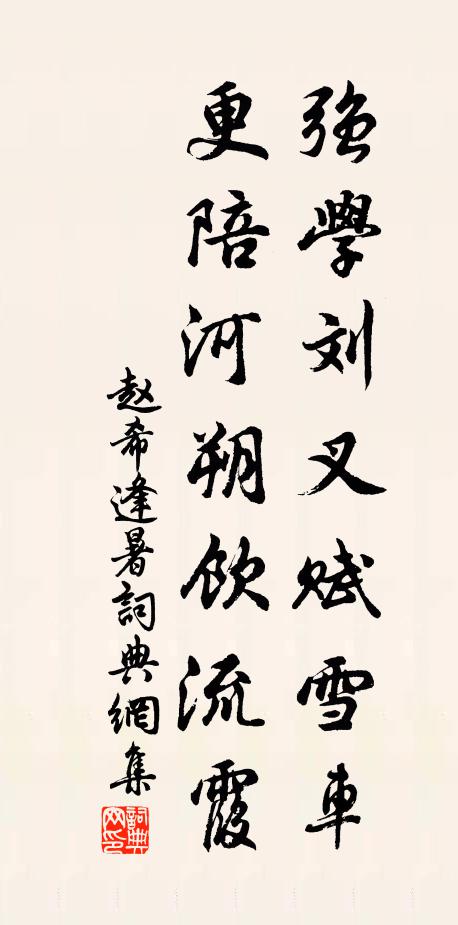 強學刘叉赋雪車
更陪河朔飲流霞
赵希逢暑詞典網集
詞典网印